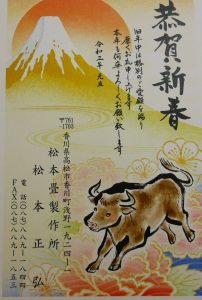 恭賀新春
旧年中は格別のご愛顧を賜り
厚くお礼申し上げます
本年も何卒よろしくお願い致します
令和三年 元旦
〒761-1703
香川県高松市香川町浅野一九二四ー一
松本畳製作所
松本 正
電話〇八七ー八八九ー一八四四
FAX〇八七ー八八九ー一八五三
弘